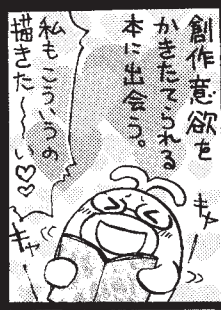 創作意欲を
かきたてられる
本に出会う。
私もこういうの
描きた〜い♡♡
キャ
キャ